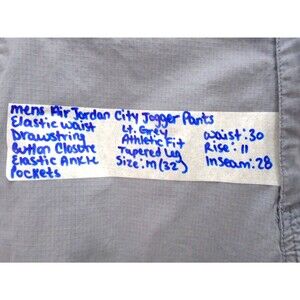 mens Air Jordan City Jogger Pants
Elastic Waist
Drawstring
Button Closure
Elastic Ankle
Pockets
Lt. Grey
Athletic Fit
Tapered Leg
Size: M (32")
Waist: 30
Rise: 11
Inseam: 28